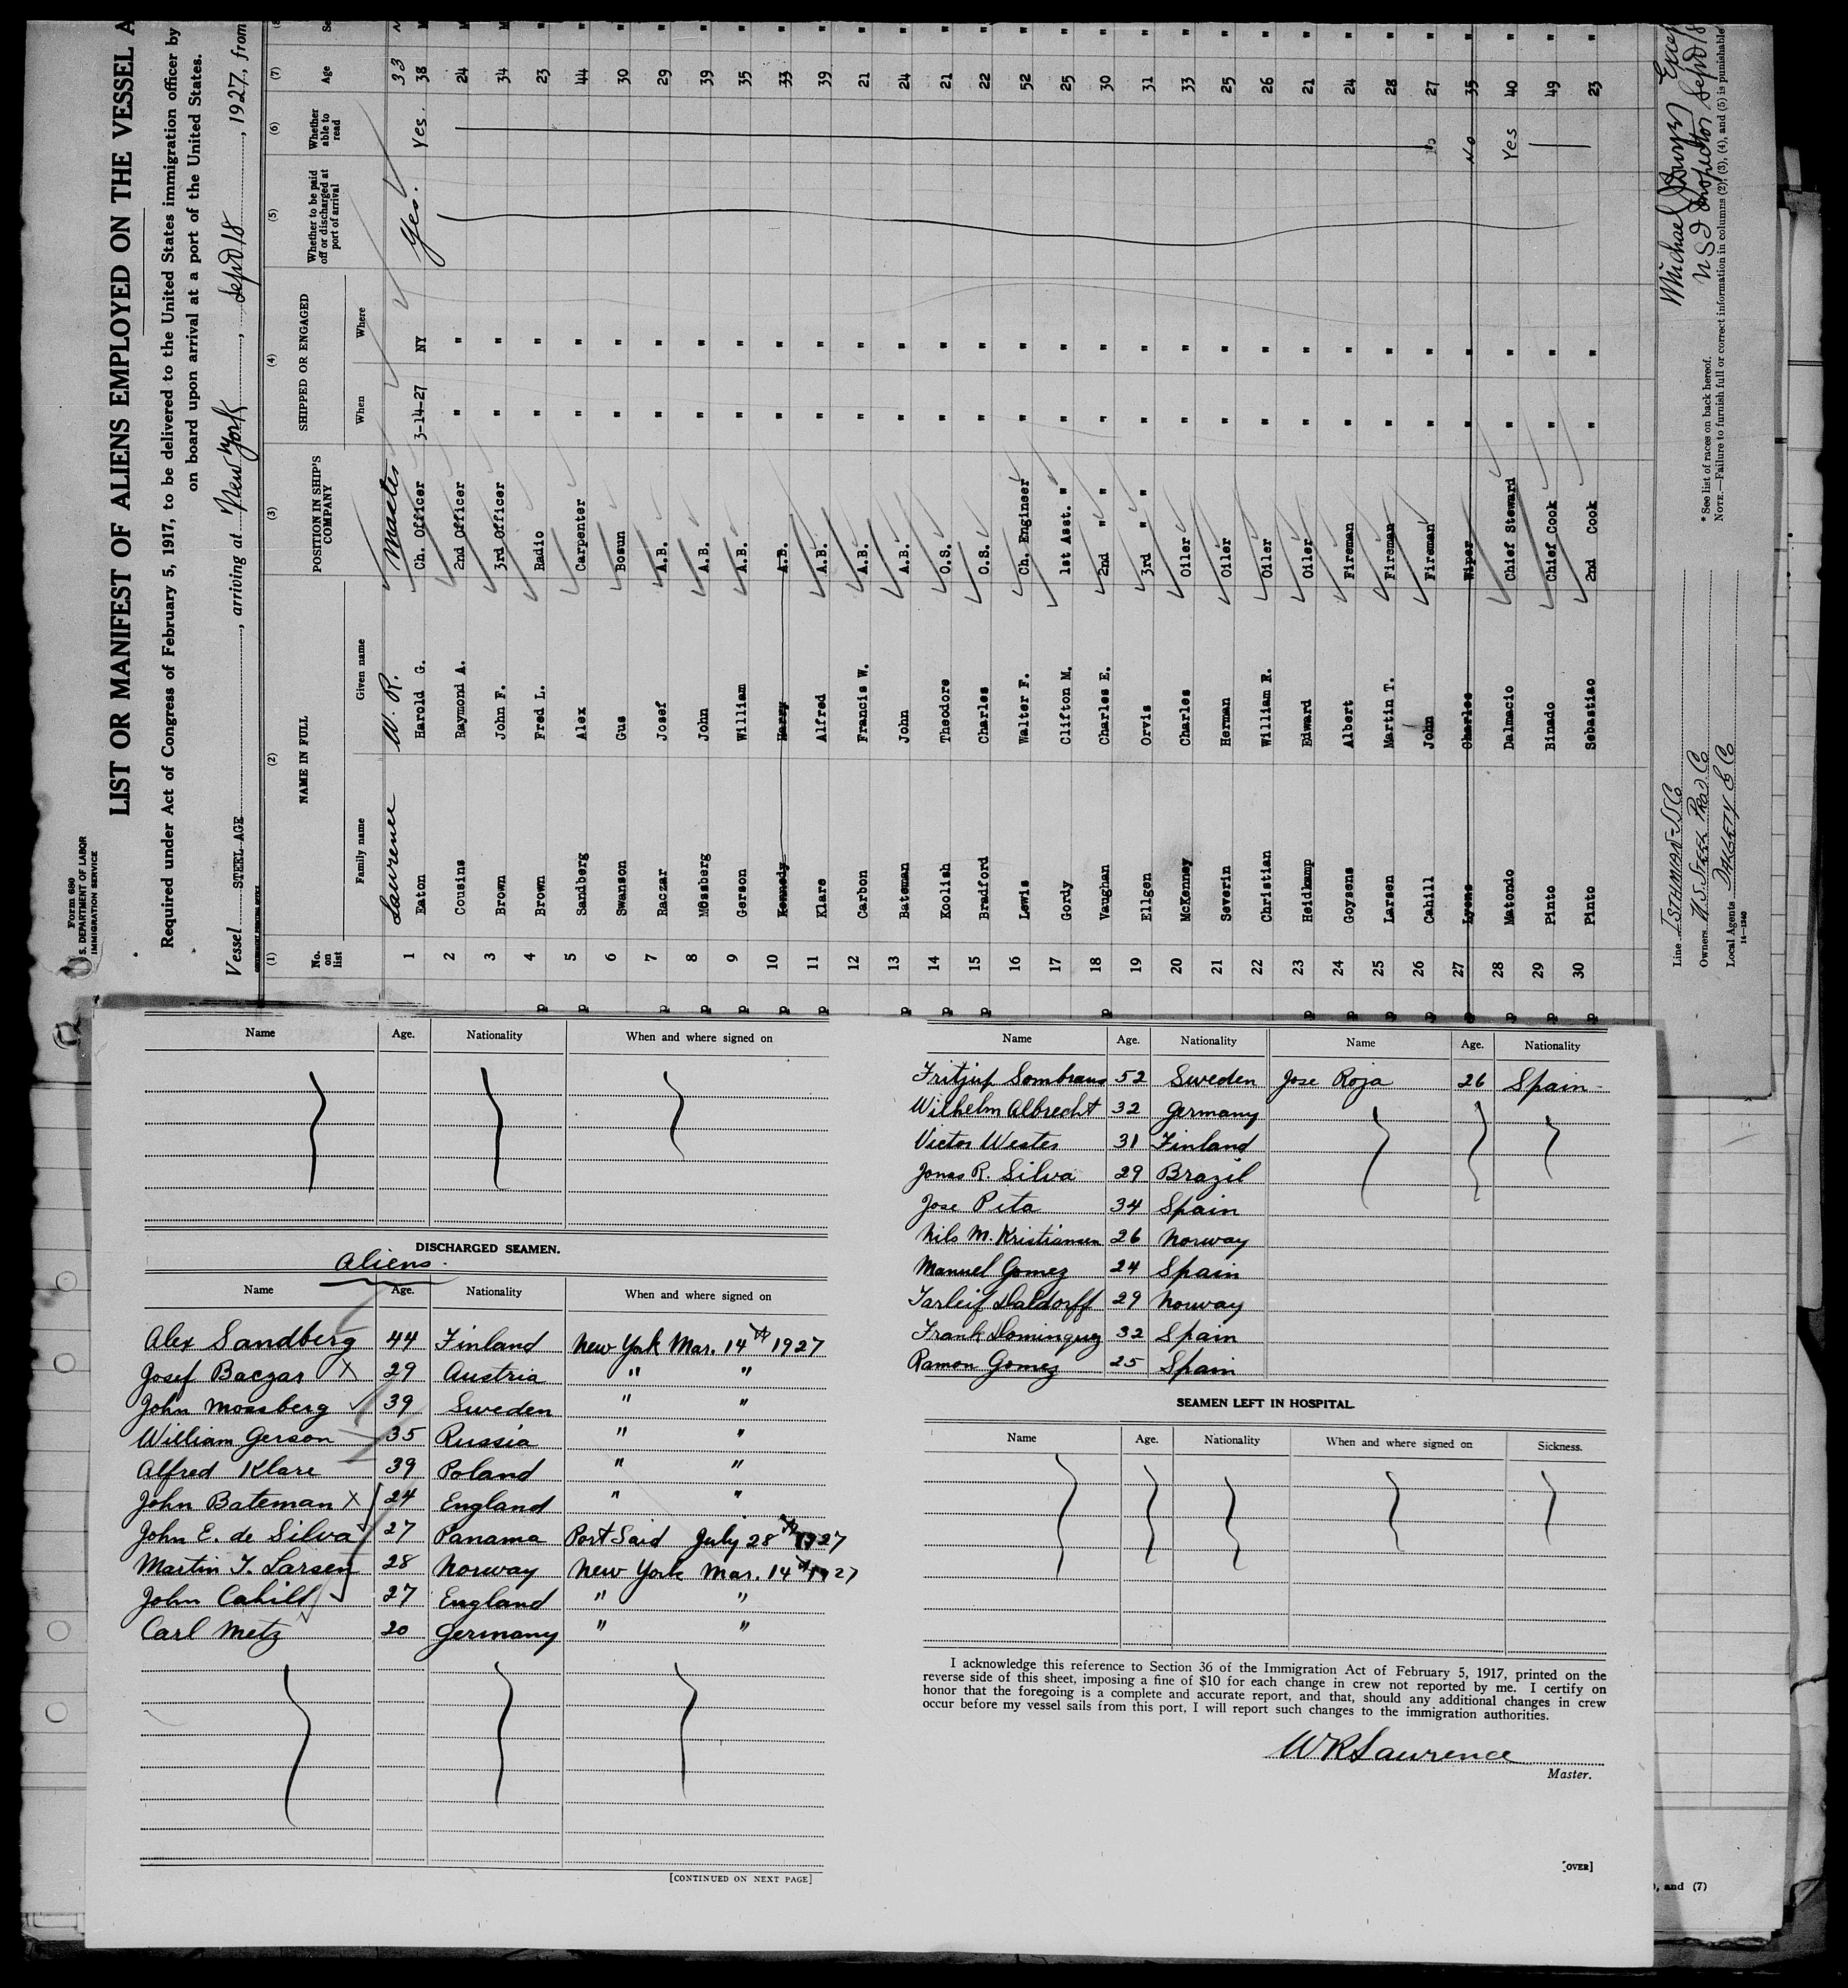 Form 680
U. S. DEPARTMENT OF LABOR
IMMIGRATION SERVICE
LIST OR MANIFEST OF ALIENS EMPLOYED ON THE VESSEL A
Required under Act of Congress of February 5, 1917, to be delivered to the United States immigration officer by
on board upon arrival at a port of the United States.
Vessel STEEL AGE, arriving at New York, Sept 18, 1927, from
(1) (2) (3) (4) (5) (6) (7)
No. on list NAME IN FULL POSITION IN SHIP'S COMPANY SHIPPED OR ENGAGED Whether to be paid off or discharged at port of arrival Whether able to read Age
Family name Given name When Where
Lawrence W. R. Master Yes. 33
1 Eaton Harold G. Ch. Officer 3-14-27 NY Yes. 38
2 Cousins Raymond A. 2nd Officer " " 24
3 Brown John F. 3rd Officer " " 34
p 4 Brown Fred L. Radio " " 23
p 5 Sandberg Alex Carpenter " " 44
6 Swanson Gus Bosun " " 30
p 7 Baczar Josef A.B. " " 29
p 8 Mossberg John A.B. " " 39
p 9 Gerson William A.B. " " 35
p 10 Kennedy Harry A.B. " " 33
p 11 Klare Alfred A.B. " " 39
12 Carbon Francis W. A.B. " " 21
p 13 Bateman John A.B. " " 24
p 14 Koolish Theodore O.S. " " 21
p 15 Bradford Charles O.S. " " 22
16 Lewis Walter F. Ch. Engineer " " 52
17 Gordy Clifton M. 1st Asst. " " " 25
p 18 Vaughan Charles E. 2nd " " " " 30
19 Ellgen Orvis 3rd " " " " 31
20 McKenney Charles Oiler " " 33
21 Severin Herman Oiler " " 25
22 Christian William R. Oiler " " 26
p 23 Heidkamp Edward Oiler " " 21
p 24 Goyzens Albert Fireman " " 24
p 25 Larsen Martin T. Fireman " " 28
p 26 Cahill John Fireman " " 27
p 27 Lyons Charles Wiper " " No 35
p 28 Matondo Dalmacio Chief Steward " " Yes 40
p 29 Pinto Binado Chief Cook " " 49
p 30 Pinto Sebastiao 2nd Cook " " 23
Line ISTHMIAN SS Co
Owners U.S. Steel Prod Co
Local Agents
14—1240
* See list of races on back hereof.
NOTE.—Failure to furnish full or correct information in columns (2), (3), (4), and (5) is punishable
Michael
Inspector Sept 18
Name Age. Nationality When and where signed on
DISCHARGED SEAMEN.
Aliens.
Name Age. Nationality When and where signed on
Alex Sandberg 44 Finland New York Mar. 14th 1927
Josef Baczar X 29 Austria " "
John Mossberg 39 Sweden " "
William Gerson 35 Russia " "
Alfred Klare 39 Poland " "
John Bateman X 24 England " "
John E. de Silva 27 Panama Port Said July 28th 1927
Martin T. Larsen 28 Norway New York Mar. 14th 1927
John Cahill 27 England " "
Carl Metz 20 Germany " "
[CONTINUED ON NEXT PAGE]
Name Age. Nationality Name Age. Nationality
Fritjup Sombraus 52 Sweden Jose Roja 26 Spain
Wilhelm Albrecht 32 Germany
Victor Wester 31 Finland
Jonas R. Silva 29 Brazil
Jose Pita 34 Spain
Nils M. Kristiansen 26 Norway
Manuel Gomez 24 Spain
Tarleif Daldorff 29 Norway
Frank Dominguez 32 Spain
Ramon Gomez 25 Spain
SEAMEN LEFT IN HOSPITAL.
Name Age. Nationality When and where signed on Sickness.
I acknowledge this reference to Section 36 of the Immigration Act of February 5, 1917, printed on the
reverse side of this sheet, imposing a fine of $10 for each change in crew not reported by me. I certify on
honor that the foregoing is a complete and accurate report, and that, should any additional changes in crew
occur before my vessel sails from this port, I will report such changes to the immigration authorities.
W R Lawrence
Master.
[OVER]
), and (7)